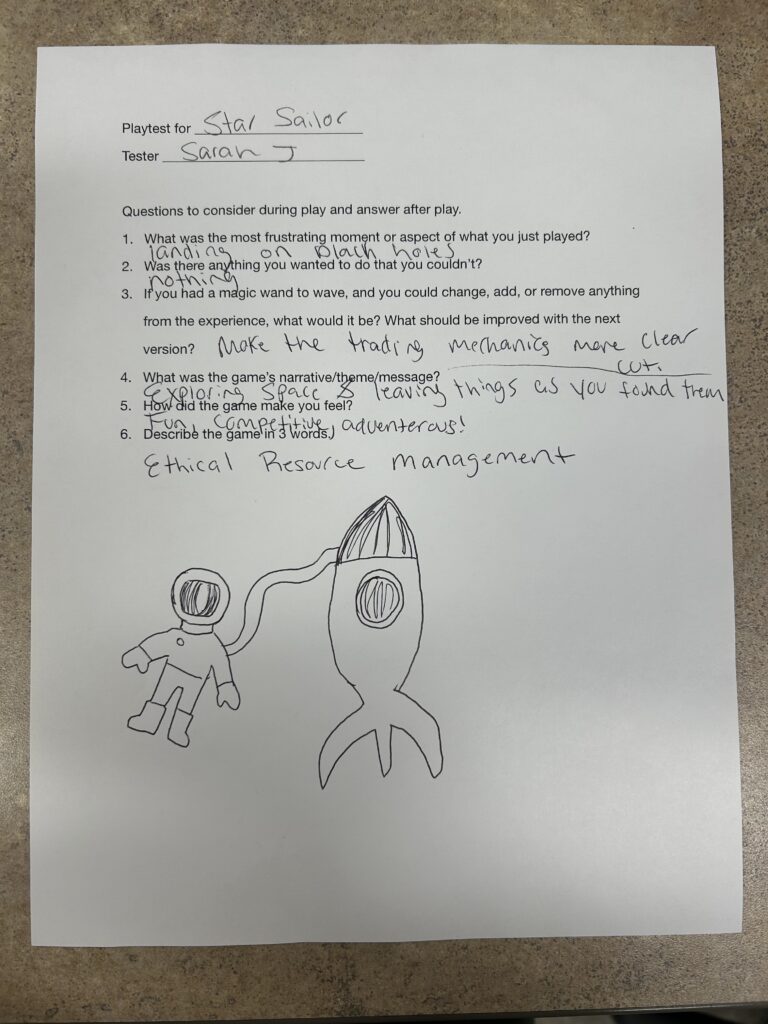 Playtest for Star Sailor
Tester Sarah J
Questions to consider during play and answer after play.
1. What was the most frustrating moment or aspect of what you just played?
landing on black holes
2. Was there anything you wanted to do that you couldn't?
nothing
3. If you had a magic wand to wave, and you could change, add, or remove anything
from the experience, what would it be? What should be improved with the next
version? Make the trading mechanics more clear
cut.
4. What was the game's narrative/theme/message?
Exploring space & leaving things as you found them
5. How did the game make you feel?
Fun, competitive, adventerous!
6. Describe the game in 3 words.
Ethical Resource management